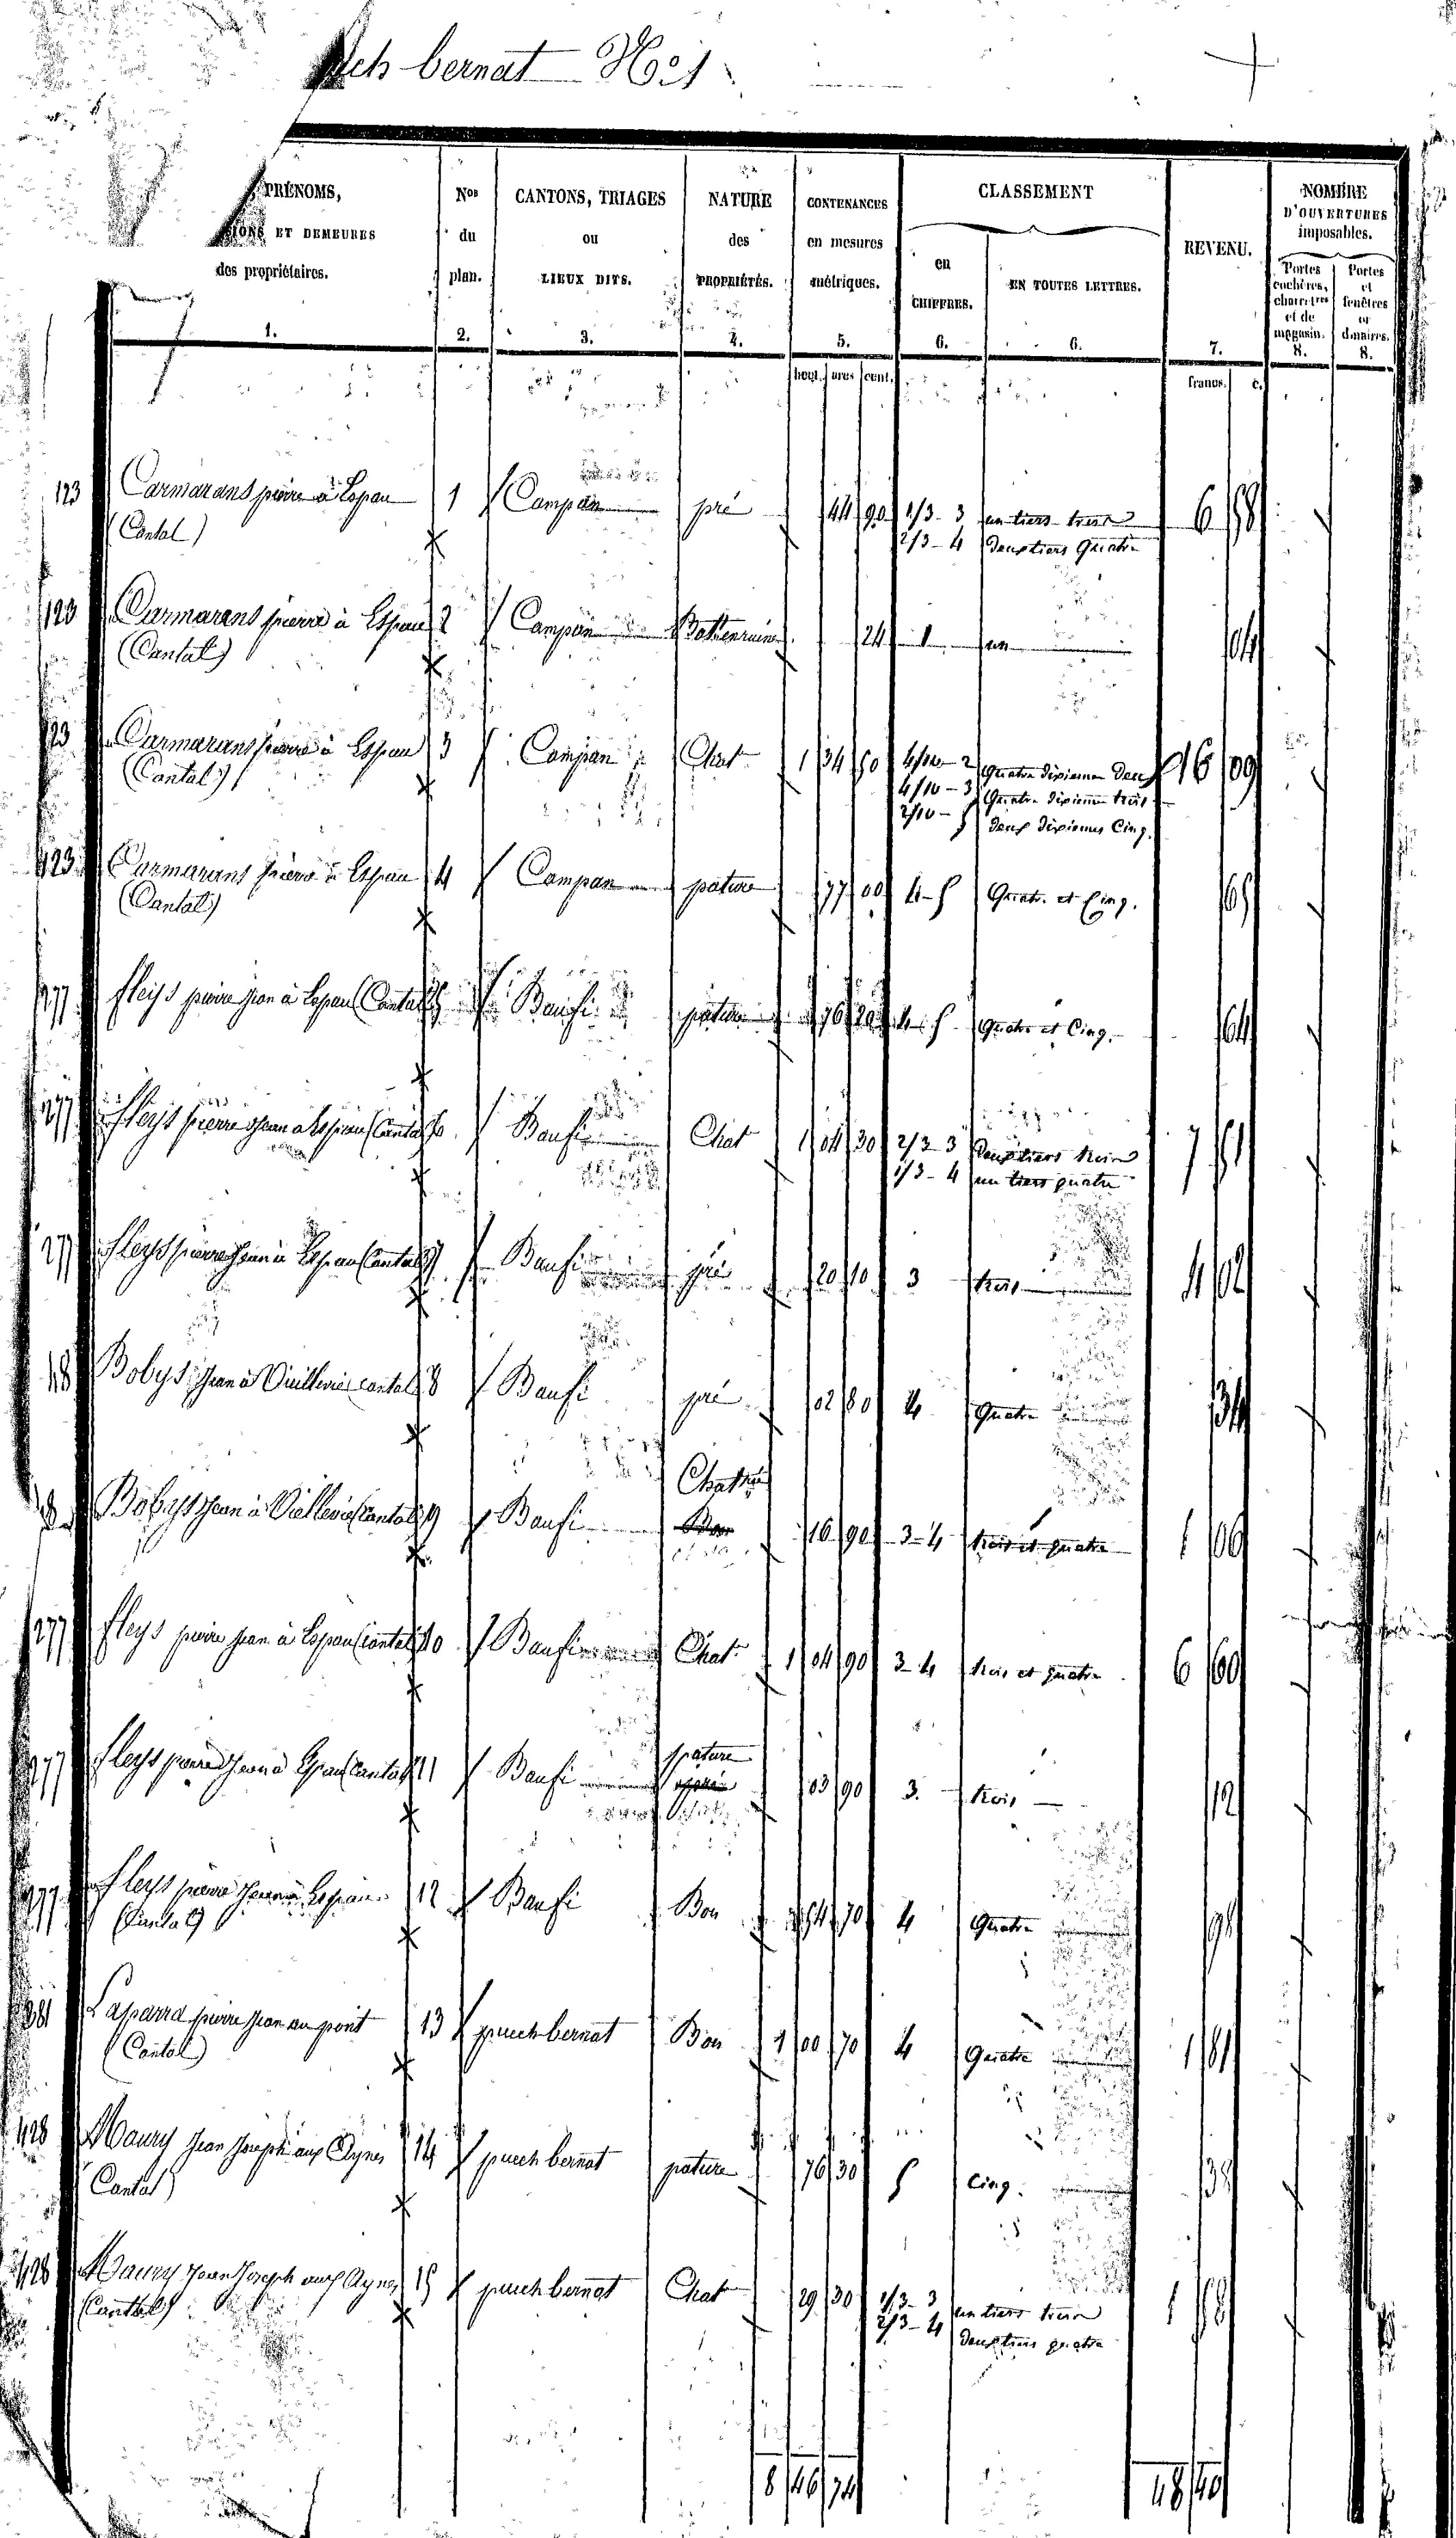 bernat
PRÉNOMS,
ET DEMEURES
des propriétaires.
1.
Nos
du
plan.
2.
CANTONS, TRIAGES
ou
LIEUX DITS.
3.
NATURE
des
PROPRIÉTÉS.
4.
CONTENANCES
en mesures
métriques.
5.
hect. ares cent.
CLASSEMENT
en
CHIFFRES.
6.
EN TOUTES LETTRES.
6.
REVENU.
7.
francs. c.
NOMBRE
D'OUVERTURES
imposables.
Portes
cochères,
charretres
et de
magasin.
8.
Portes
et
fenêtres
or
dinaires.
8.
123 Carmarans pierre à Espau 1 Campan pré 44 90 1/3-3 un tiers trois 6
(Cantal) 2/3-4 deux tiers Quatre
123 Carmarans pierre à Espau 2 Campan 24 1 un 04
(Cantal)
123 Carmarans pierre à Espau 3 Campan Chat 1 34 50 4/10-2 Quatre dixiemes deux 16 09
(Cantal) 4/10-3 Quatre dixiemes trois
2/10-5 deux dixiemes Cinq.
123 Carmarans pierre à Espau 4 Campan pature 77 00 4-5 Quatr. et Cinq. 65
(Cantal)
277 fleys pierre jean à Espau (Cantal) 5 Baufi pature 76 20 4-5 Quatre et Cinq. 64
277 fleys pierre jean à Espau (Cantal) 6 Baufi Chat 1 04 30 2/3 3 deux tiers trois 7 51
1/3-4 un tiers quatre
277 fleys pierre jean à Espau (Cantal) 7 Baufi pré 20 10 3 trois 4 02
48 Bobys Jean à Vieillevie (Cantal) 8 Baufi pré 02 80 4 Quatre 34
Bobys Jean à Vieillevie (Cantal) 9 Baufi 16 90 3-4 trois et quatre 1 06
277 fleys pierre jean à Espau (Cantal) 10 Baufi Chat 1 04 90 3-4 trois et quatre 6 60
277 fleys pierre jean à Espau (Cantal) 11 Baufi pature 03 90 3 trois 12
277 fleys pierre jean à Espau 12 Baufi Bon 54 70 4 Quatre 98
(Cantal)
381 Laparra pierre jean au pont 13 puech bernat Bon 1 00 70 4 Quatre 1 81
(Cantal)
428 Maury Jean Joseph aux Aynes 14 puech bernat pature 76 30 5 Cinq. 38
Cantal)
428 Maury Jean Joseph aux Aynes 15 puech bernat Chat 29 30 1/3-3 un tiers trois 1 58
(Cantal) 2/3-4 deux tiers quatre
8 46 74 48 40